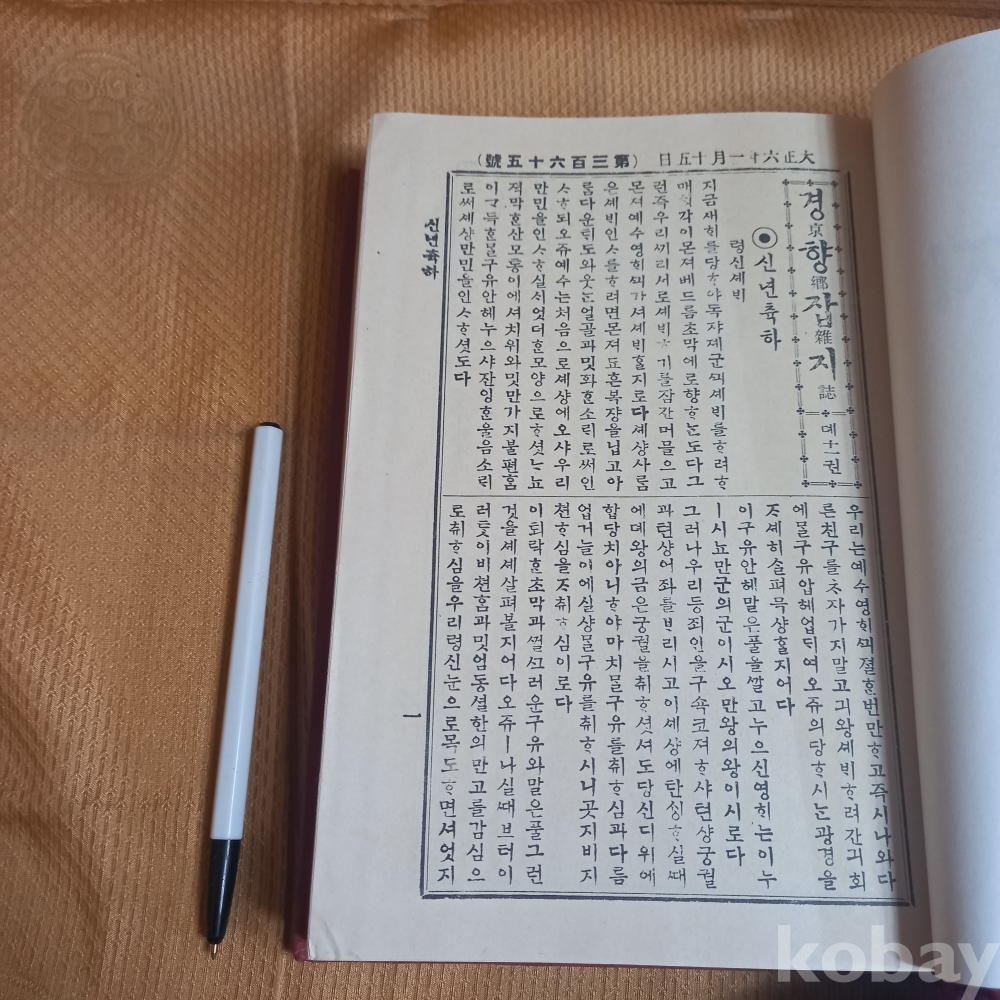 大正六年一月十五日 (第三百六十五號)
경京향鄕잡雜지誌 뎨十一권
◉신년츅하
령신셰ᄇᆡ
지금새ᄒᆡ를당ᄒᆞ야독쟈제군ᄭᅴ셰ᄇᆡ를ᄒᆞ려ᄒᆞ
매ᄉᆡᆼ각이몬져베드름초막에로향ᄒᆞᄂᆞᆫ도다그
런즉우리끼리서로셰ᄇᆡᄒᆞ기를잠간머믈으고
몬져예수영ᄒᆡᄭᅴ가셔셰ᄇᆡᄒᆞᆯ지로다셰샹사ᄅᆞᆷ
은셰ᄇᆡ인ᄉᆞ를ᄒᆞ려면몬져됴흔복쟝을닙고아
ᄅᆞᆷ다운ᄐᆡ도와웃ᄂᆞᆫ얼골과밋화ᄒᆞᆫ소ᄅᆡ로써인
ᄉᆞᄒᆞ되오쥬예수는처음으로셰샹에오샤우리
만민을인ᄉᆞᄒᆞ실서엇더ᄒᆞᆫ모양으로ᄒᆞ셧ᄂᆞ뇨
젹막ᄒᆞᆫ산모롱이에셔치위와밋만가지불편홈
이ᄀᆞ득ᄒᆞᆫᄆᆞᆯ구유안헤누으샤잔잉ᄒᆞᆫ울음소ᄅᆡ
로써셰샹만민을인ᄉᆞᄒᆞ셧도다
우리는예수영ᄒᆡᄭᅴ졀ᄒᆞᆫ번만ᄒᆞ고즉시나와다
른친구를ᄎᆞ자가지말고긔왕셰ᄇᆡᄒᆞ려간긔회
에ᄆᆞᆯ구유압헤업ᄃᆡ여오쥬의당ᄒᆞ시ᄂᆞᆫ광경을
ᄌᆞ셰히솔펴믁샹ᄒᆞᆯ지어다
이구유안헤말은풀을ᄭᆞᆯ고누으신영ᄒᆡ는이누
ㅣ시뇨만군의군이시오만왕의왕이시로다
그러나우리등죄인을구쇽코져ᄒᆞ샤텬샹궁궐
과텬샹어좌를ᄇᆞ리시고이셰샹에탄ᄉᆡᆼᄒᆞ실ᄯᅢ
에뎨왕의금은궁궐을취ᄒᆞ셧셔도당신디위에
합당치아니ᄒᆞ야마치ᄆᆞᆯ구유를취ᄒᆞ심과다름
업거늘이에실샹ᄆᆞᆯ구유를취ᄒᆞ시니곳지비지
쳔ᄒᆞ심을ᄌᆞ취ᄒᆞ심이로다
이퇴락ᄒᆞᆫ초막과ᄶᅥᆯᄭᅳ러운구유와말은풀그런
것을셰셰살펴볼지어다오쥬ㅣ나실ᄯᅢ브터이
러ᄐᆞᆺ이비쳔홈과밋엄동셜한의만고를감심으
로취ᄒᆞ심을우리령신눈으로목도ᄒᆞ면셔엇지
신년츅하
一
kobay